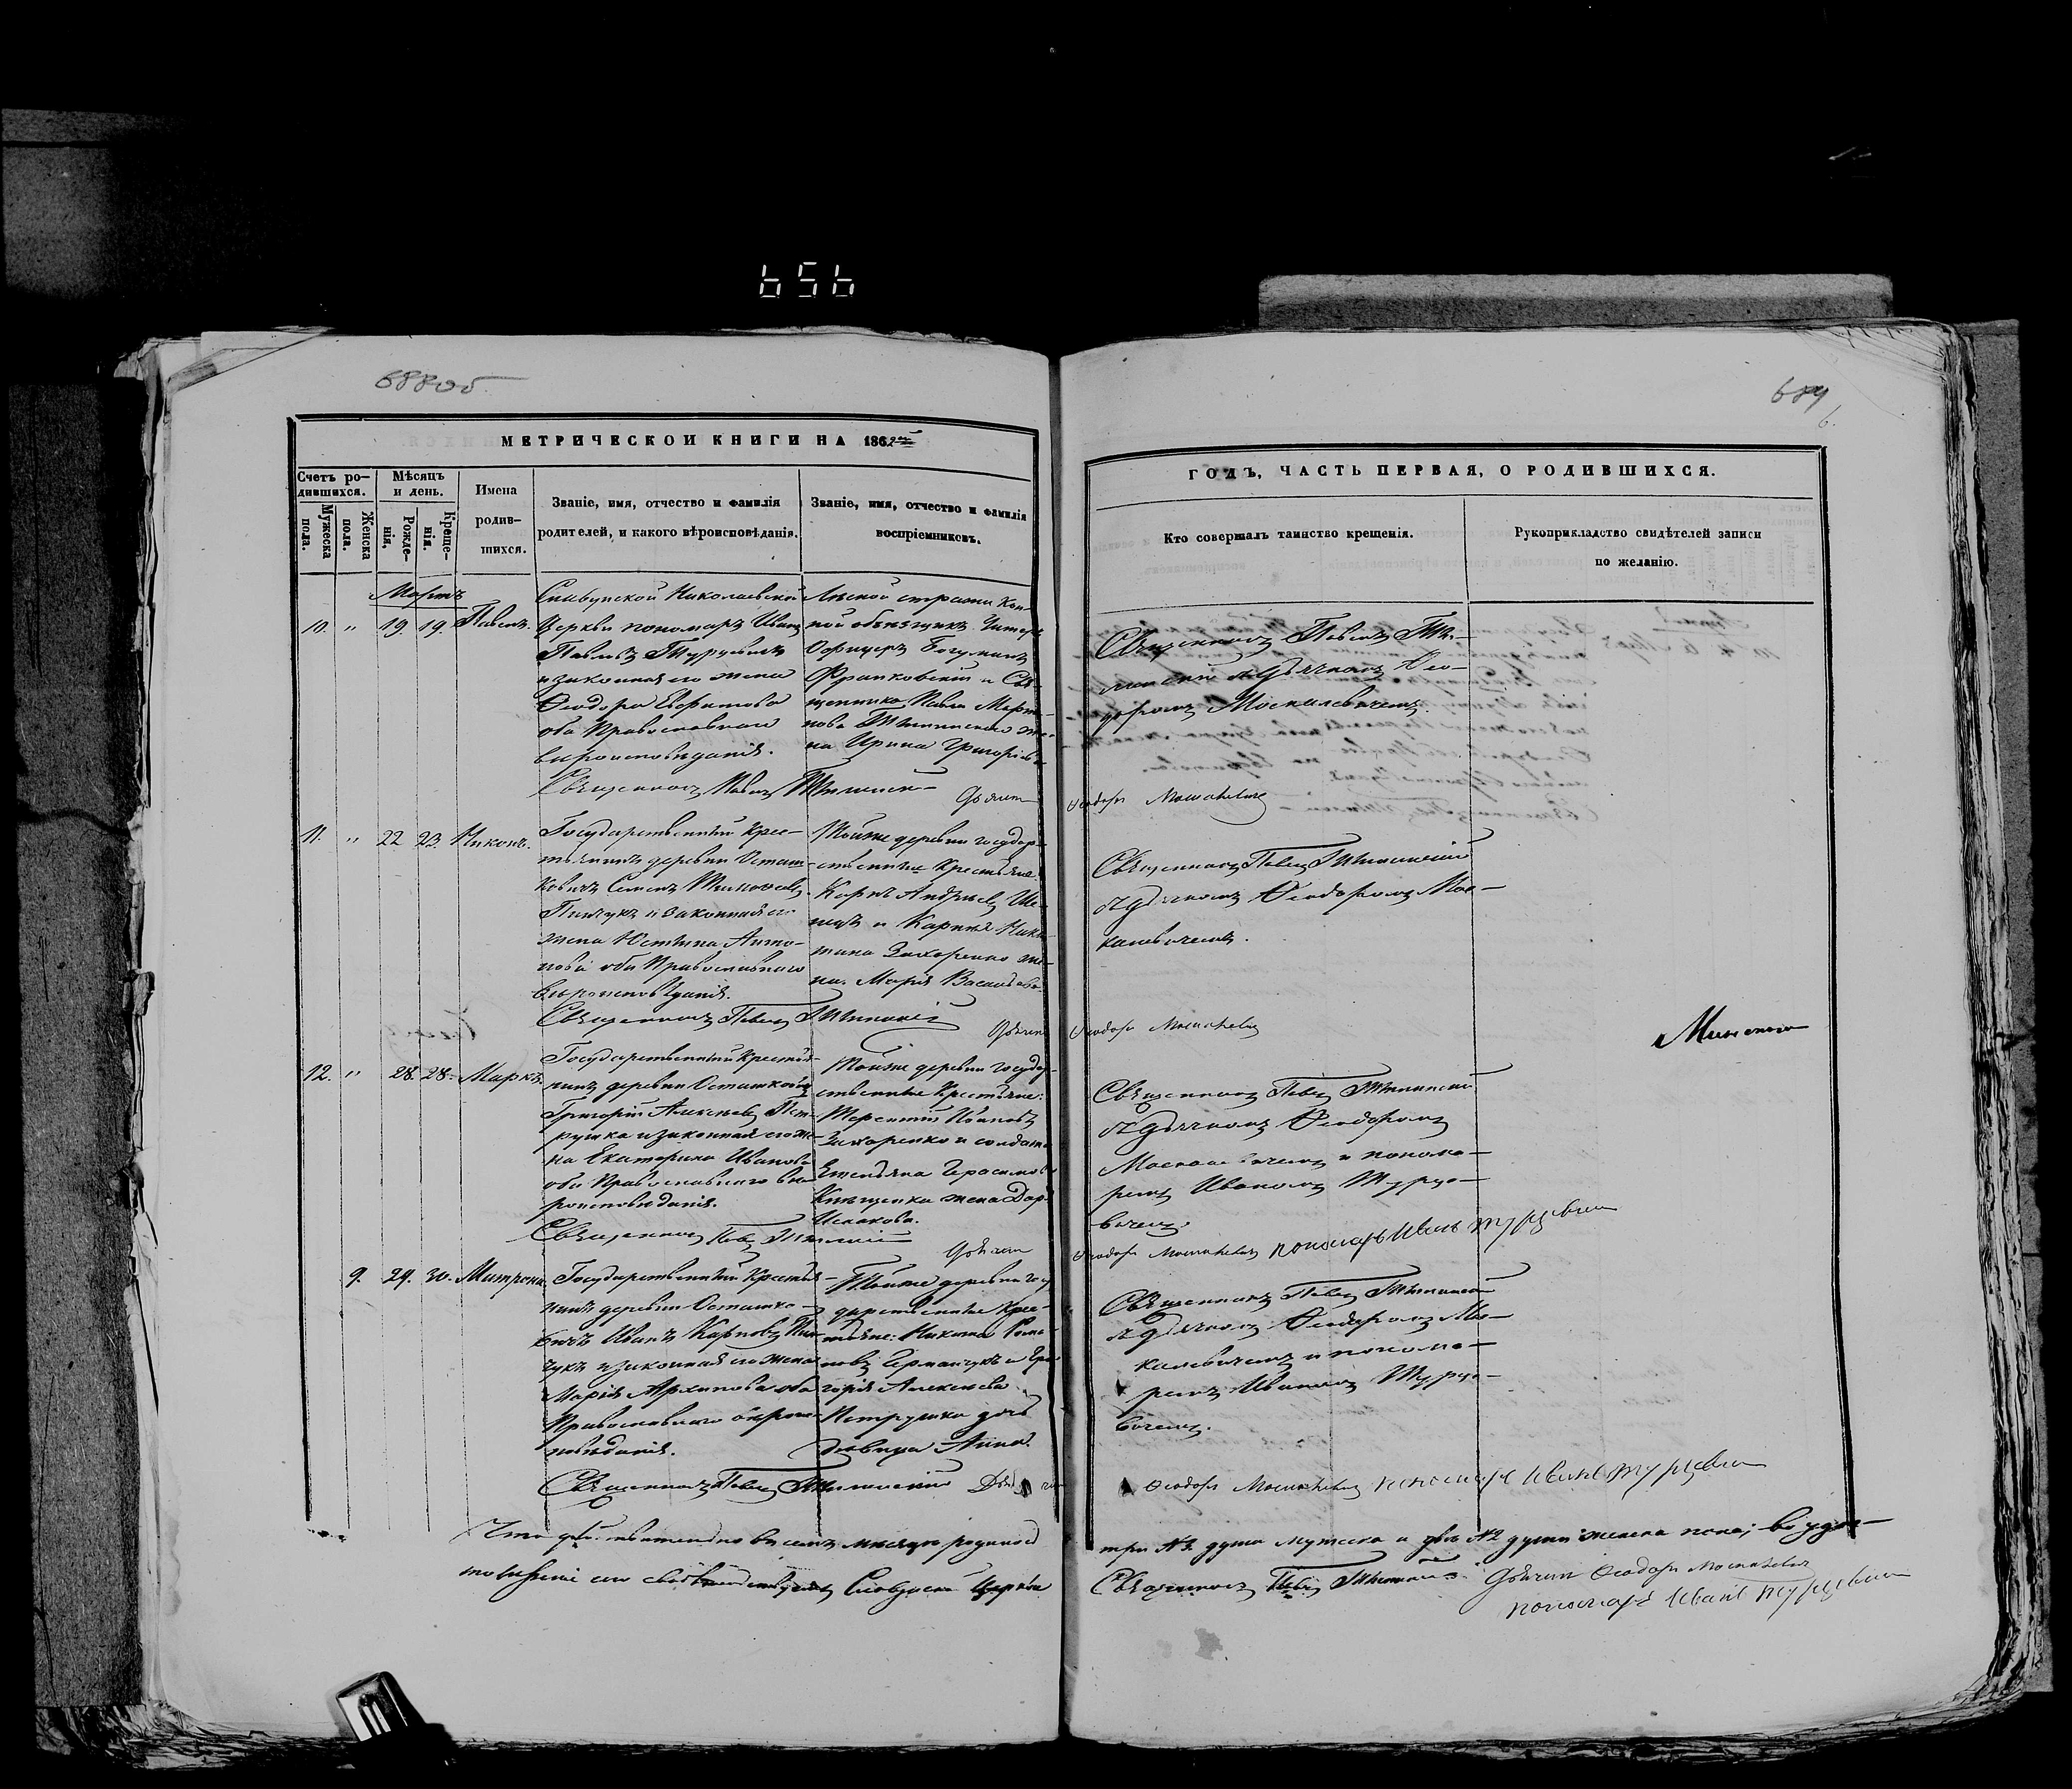 656
688об
689
6.
МЕТРИЧЕСКОЙ КНИГИ НА 1862ой
ГОДЪ, ЧАСТЬ ПЕРВАЯ, О РОДИВШИХСЯ.
Счетъ ро-
дившихся.
Мужеска
пола.
Женска
пола.
Мѣсяцъ
и день.
Рожде-
нія.
Креще-
нія.
Имена
родив-
шихся.
Званіе, имя, отчество и фамилія
родителей, и какого вѣроисповѣданія.
Званіе, имя, отчество и фамилія
воспріемниковъ.
Кто совершалъ таинство крещенія.
Рукоприкладство свидѣтелей записи
по желанію.
Мартъ
10. " 19. 19. Павелъ.
Николаевской
Церкви пономарь Иванъ
Павловъ Турцевичъ
и законная его жена
Ѳеодора
оба Православнаго
вѣроисповѣданія.
Лѣсной стражи Кон-
ной объѣзчикъ Унтеръ
Офицеръ
и Свя-
щенника Павла
жена
Ирина Григорьева
Священникъ Павелъ
Дьячекъ Ѳеодоръ Москалевичъ
Священникъ Павелъ
съ дьячкомъ Ѳео-
доромъ Москалевичемъ.
11. " 22 23. Никонъ.
Государственный Крес-
тьянинъ деревни Осташ-
ковичъ Семенъ Тимоѳеевъ
Пинчукъ и законная его
жена Юстина Анто-
нова оба Православнаго
вѣроисповѣданія.
Тойже деревни государ-
ственные Крестьяне:
Карпъ Андреевъ
и
Захоренко же-
на Марія Васильева.
Священникъ Павелъ
Дьячекъ Ѳеодоръ Москалевичъ
Священникъ Павелъ
съ дьячкомъ Ѳеодоромъ Мос-
калевичемъ.
Минскаго
12. " 28. 28. Маркъ.
Государственный Крестья-
нинъ деревни Осташковичъ
Григорій Алексѣевъ Пет-
рушка и законная его же-
на Екатерина Иванова
оба Православнаго вѣ-
роисповѣданія.
Тойже деревни государ-
ственные Крестьяне:
Терентій Ивановъ
Захоренко и солдата
Емельяна Герасимова
жена Дарья
Исакова.
Священникъ Павелъ
Дьячекъ Ѳеодоръ Москалевичъ пономарь Иванъ Турцевичъ
Священникъ Павелъ
съ дьячкомъ Ѳеодоромъ
Москалевичемъ и понома-
ремъ Иваномъ Турце-
вичемъ.
9. 29. 30. Матрона.
Государственный Крестья-
нинъ деревни Осташко-
вичъ Иванъ Карповъ Пин-
чукъ и законная его жена
Марія Архипова оба
Православнаго вѣроис-
повѣданія.
Тойже деревни госу-
дарственные Крес-
тьяне: Никита Рома-
новъ Германчукъ и Гри-
горія Алексѣева
Петрушки дочь
дѣвица Анна.
Священникъ Павелъ
Дьячекъ Ѳеодоръ Москалевичъ пономарь Иванъ Турцевичъ
Священникъ Павелъ
съ дьячкомъ Ѳеодоромъ Мос-
калевичемъ и понома-
ремъ Иваномъ Турце-
вичемъ.
Что действительно въ семъ мѣсяцѣ родилось три №3 души мужеска и двѣ №2 души женска пола; въ томъ
Церкви Священникъ Павелъ Дьячекъ Ѳеодоръ Москалевичъ
пономарь Иванъ Турцевичъ